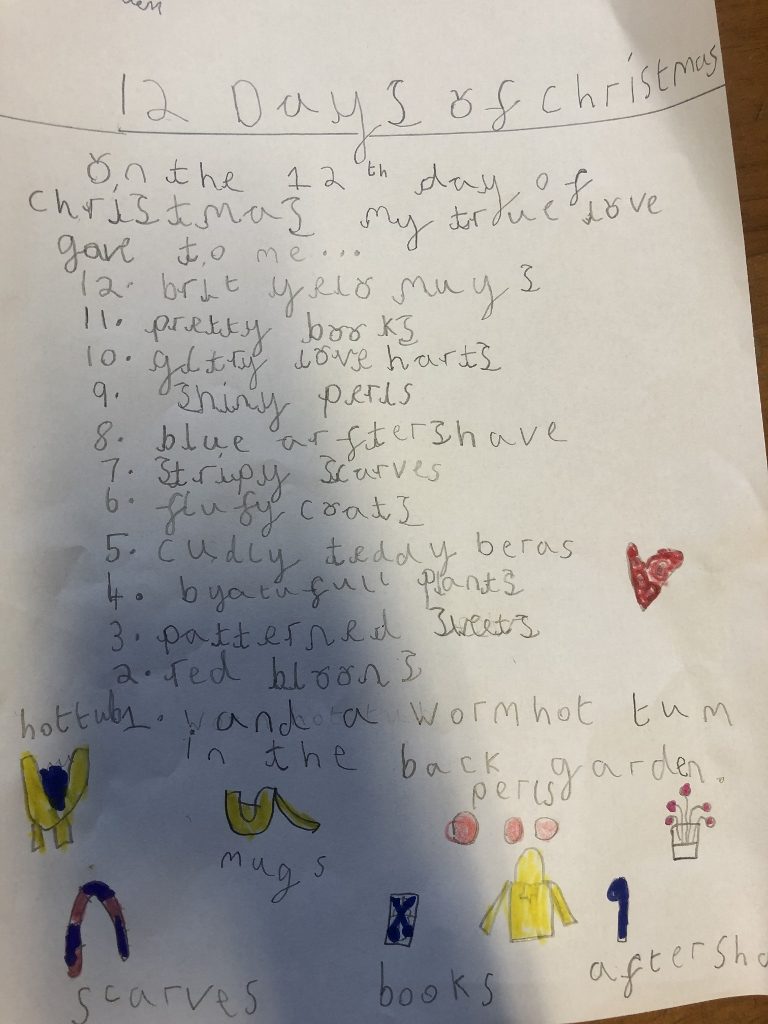 den
12 Days of christmas
On the 12th day of
christmas my true love
gave to me...
12. brit yelo mugs
11. pretty books
10. glttry love harts
9. shiny perls
8. blue arftershave
7. stripy scarves
6. flufy coats
5. cudly teddy beras
4. byatufull plants
3. patterned sweets
2. red bloons
hottub 1. and a wormhot tum
in the back garden.
perls
mugs
scarves
books
aftersha